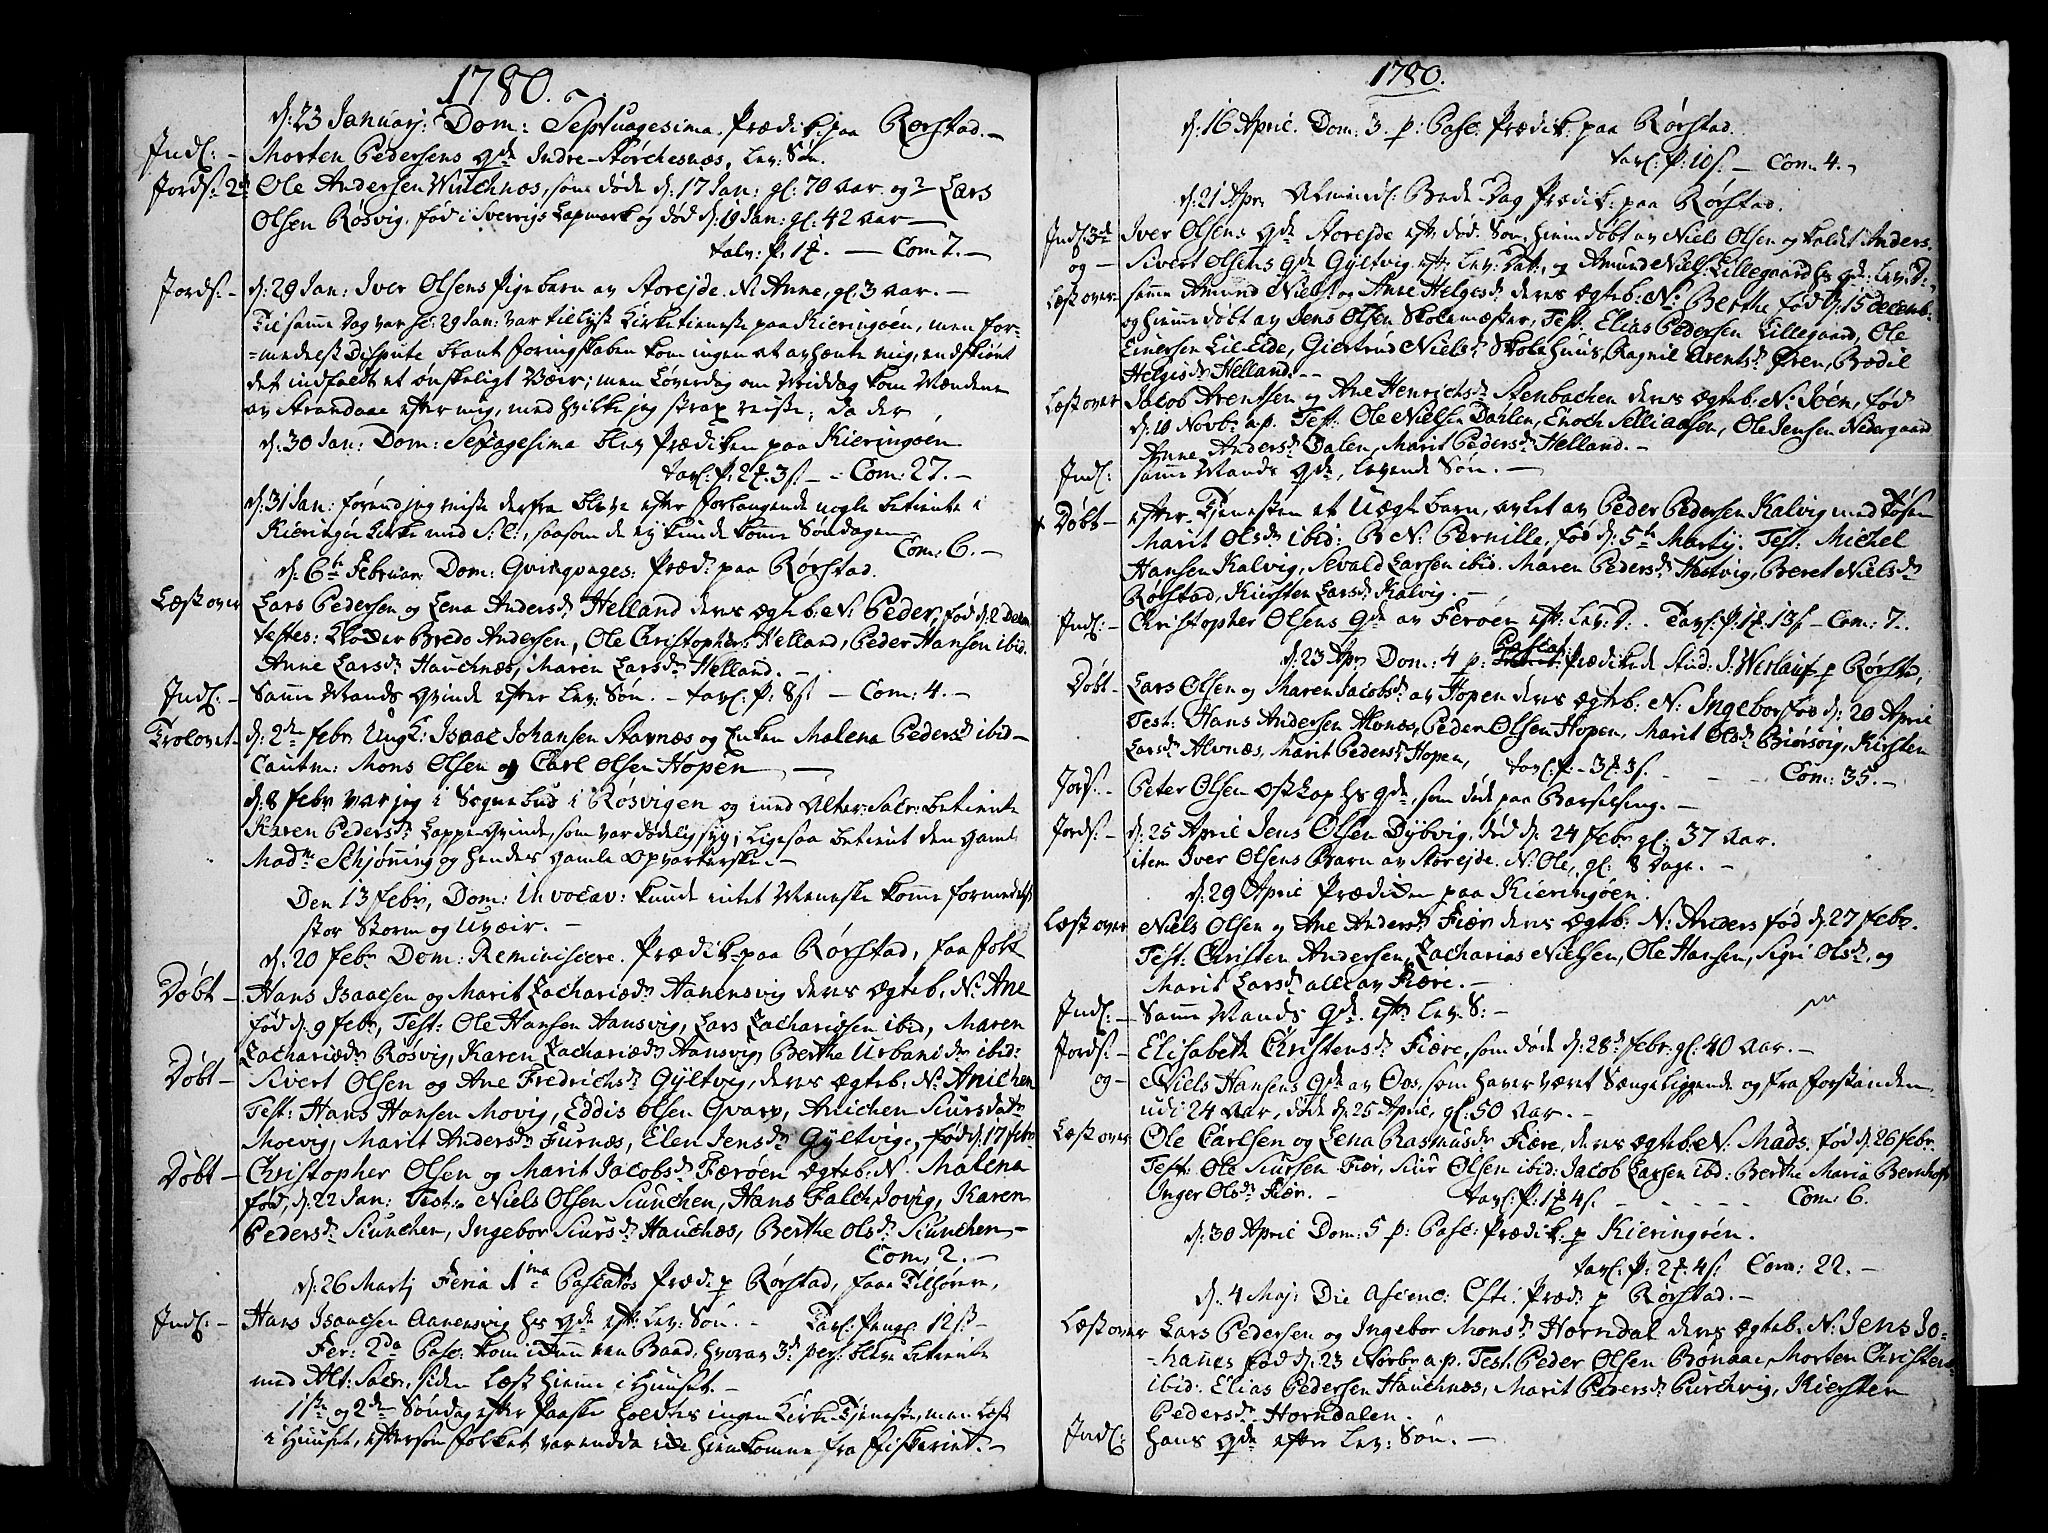 1780.
d: 23 Januarj: Dom: Septuagesima. Prædik: paa Rørstad. –
Indl: – Morten Pedersens qde Indre-Storchesnæs, Lev: Søn.
Jords: 2de Ole Andersen Winchnæs, som døde d: 17 Jan: gl: 70 Aar og 2 Lars
Olsen Røsvig, fød i Sverrigs Lapmark og død d: 19 Jan: gl: 42 Aar –
tavl: P. 1 – Com 7. –
Jords: – d: 29 Jan: Iver Olsens Pigebarn av Storejde. N: Anne, gl: 3 Aar. –
samme Dag var 29 Jan: var tillyst Kirketieneste paa Kieringøen, men for-
=medelst Dispute blant foringskaben kom ingen at avhænte mig, endskiønt
det indfaldt et ønskeligt Væir; men Løverdag om Middag kom Mændene
av Strandaae efter mig, med hvilke jeg strax reiste; da der
d: 30 Jan: Dom: Sexagesima blev Prædiken paa Kieringøen
tavl: P. 2 3 s: – Com: 27. –
d: 31 Jan: førend jeg reiste derfra bleve efter forlangende nogle betiente i
Kieringøe Kirke med S: C:, saasom de ey kunde komme Søndagen
Com: 6. –
d: 6te Februar: Dom: Qvinqvages: Præd: paa Rørstad.
Læst over Lars Pedersen og Lena Andersdr Helland deres Ægteb: N: Peder, fød d: 2 Decem
testes: Bredo Andersen, Ole Christophers: Helland, Peder Hansen ibid.
Anne Larsdr Hauchnæs, Maren Larsdr Helland. –
Indl: – Samme Mands Qvinde efter Lev: Søn. – tavl: P: 8 s: – Com: 4. –
Trolovet – d: 2de febr Ungk: Isaac Johansen Starnæs og Enken Malena Pedersd ibid –
Cautm: Mons Olsen og Carl Olsen Hopen –
d: 8 febr var jeg i Sognebud i Røsvigen og med Alter: Sacr: betiente
Karen Pedersdr Lappe-Qvinde, som var dødelig syg; ligesaa betient den gamle
Madme Schjønning og hendes gamle opvarterske. –
Den 13 febr, Dom: Invocav: kunde intet Menneske komme formedelst
stor Storm og Uvæir. –
d: 20 febr Dom: Reminiscere. Prædik: paa Rørstad, faa folk
Døbt – Hans Isaacsen og Marit Zachariædr Aanensvig deres Ægteb. N: Ane
fød d: 9 febr, Test: Ole Hansen Aansvig, Lars Zachariasen ibid, Maren
Zachariædr Røsvig, Karen Zachariædr Aansvig, Berthe Urbanidr ibid:
Døbt – Sivert Olsen og Ane Fredrichsdr Gyltvig, deres Ægteb: N: Anichen
Test: Hans Hansen Movig, Eddis Olsen Qvarv, Anichen Siursdatr
Moevig, Marit Andersdr Furnæs, Elen Jensdr Gyltvig, fød d: 17 febr
Døbt – Christopher Olsen og Marit Jacobsdr Færøen Ægteb: N: Malena
fød, d: 22 Jan: Test: Niels Olsen Siunchen, Hans Falch Jovig, Karen
Pedersdr Siunchen, Ingebor Siursdr Hauchnæs, Berthe Olsdr Siunchen –
Com: 2. –
d: 26 Martij Feria 1ma Pascatos Præd: p Rørstad, faae Tilhørere,
Indl: – Hans Isaacsen Aanensvig hs qde eft: Lev: Søn. – Tavl: Peng: 12 s –
Fer: 2da Pasc: kom een Baad, hvorav 3de pers: bleve betiente
med Alt: Sacr, siden Læst hiemme i Huuset. –
1ste og 2den Søndag efter Paaske holdtes ingen Kirke-Tjeneste, men Læst
i Huuset, eftersom folket var endda ei hiemkomne fra fiskeriet. –
1780.
d: 16 April. Dom: 3. p: Pasc. Prædik: paa Rørstad.
tavl: P: 10 s. – Com: 4. –
d: 21 Apr Almindel: Bede-Dag Prædik: paa Rørstad.
Indl: 3de Iver Olsens qde Storejde eft: død: Søn, hiemdøbt av Niels Olsen og kaldet Anders.
og – Sivert Olsens qde Gyltvig eft: Lev: Dat:, og Amund Niels: Lillegaard hs qde: Lev: D:,
Læst over – samme Amund Niels: og Ane Helgesdr deres Ægteb: N: Berthe fød d: 15 Decemb:
og hiemmedøbt av Jens Olsen Skolemæster, Test: Elias Pedersen Lillegaard, Ole
Einersen Lil-Eide, Giertrud Nielsdr Skolehuus, Ragnil Arentsdr Øren, Bodil
Helgesdr Helland. –
Læst over Jacob Arentsen og Ane Henrichsdr Stenbachen deres Ægteb: N: Joen, fød
d: 10 Novbr a.p. Test: Ole Nielsen Dahlen, Enoch Selliaasen, Ole Jensen Nedergaard
Anne Andersdr Dalen, Marit Pedersdr Helland. –
Indl: samme Mands qde, Levende Søn. –
+ Døbt – efter Tjenesten et Uægte barn, avlet av Peder Pedersen Kalvig med Tøsen
Marit Olsdr ibid: B: N: Pernille, fød d: 5te Martij. Test: Michel
Hansen Kalvig, Sevald Larsen ibid. Maren Pedersdr Hestvig, Beret Nielsdr
Rørstad, Kiersten Larsdr Kalvig. –
Indl: – Christopher Olsens qde av Ferøen eft: Lev: D: – Tavl: P: 1 13 s – Com: 7.
d: 23 Apr Dom: 4 p: Pascat: Prædikede Stud: J. Werlauf p Rørsta,
Døbt – Lars Olsen og Maren Jacobsdr av Hopen deres Ægteb: N: Ingebor fød d: 20 April
Test: Hans Andersen Alvnæs, Peder Olsen Hopen, Marit Olsdr Biørsvig, Kirsten
Larsdr Alvnæs, Marit Pedersdr Hopen, tavl: P. – 3 3 s. – Com: 35. –
Jords: – Peter Olsen hs qde, som døde paa Barselseng. –
Jords: – d: 25 April Jens Olsen Dybvig, død d: 24 febr gl: 37 Aar.
item Iver Olsens Barn av Storejde. N: Ole, gl: 8 Dage. –
d: 29 April Prædiken paa Kieringøen.
Læst over Niels Olsen og Ane Andersdr Fiær deres Ægteb: N: Anders fød d: 27 febr.
Test: Christen Andersen, Zacharias Nielsen, Ole Hansen, Sigri Olsdr, og
Marit Larsdr alle av Fiære. –
Indl: – Samme Mands qde. eft: Lev: S: –
Jords: – Elisabeth Christensdr Fiære, som døde d: 28de febr: gl: 40 Aar. –
og – Niels Hansens qde av Oos, som haver været Sængeliggende og fra forstanden
udi 24 Aar, døde d: 25 April, gl: 50 Aar. –
Læst over Ole Carlsen og Lena Rasmusdr Fiære, deres Ægteb: N: Mads fød d: 26 febr.
Test: Ole Siursen Fiær, Siur Olsen ibid: Jacob Larsen ibd: Berthe Maria Bernhoft
Inger Olsdr Fiær. – tavl: P: 1 4 s. – Com: 6.
d: 30 April Dom: 5 p: Pasc: Prædik: p Kieringøen.
tavl: P: 2 4 s: Com: 22. –
d: 4 Maj: Die Ascenc: Csti: Præd: p Rørstad. –
Læst over Lars Pedersen og Ingebor Monsdr Horndal deres Ægteb: N: Jens Jo-
=hannes fød d: 23 Novbr a.p. Test: Peder Olsen Bønaae, Morten Christens:
ibid: Elias Pedersen Hauchnæs, Marit Pedersdr Purchvig, Kiersten
Pedersdr Horndalen.
Indl: hans qde efter Lev: Søn. –